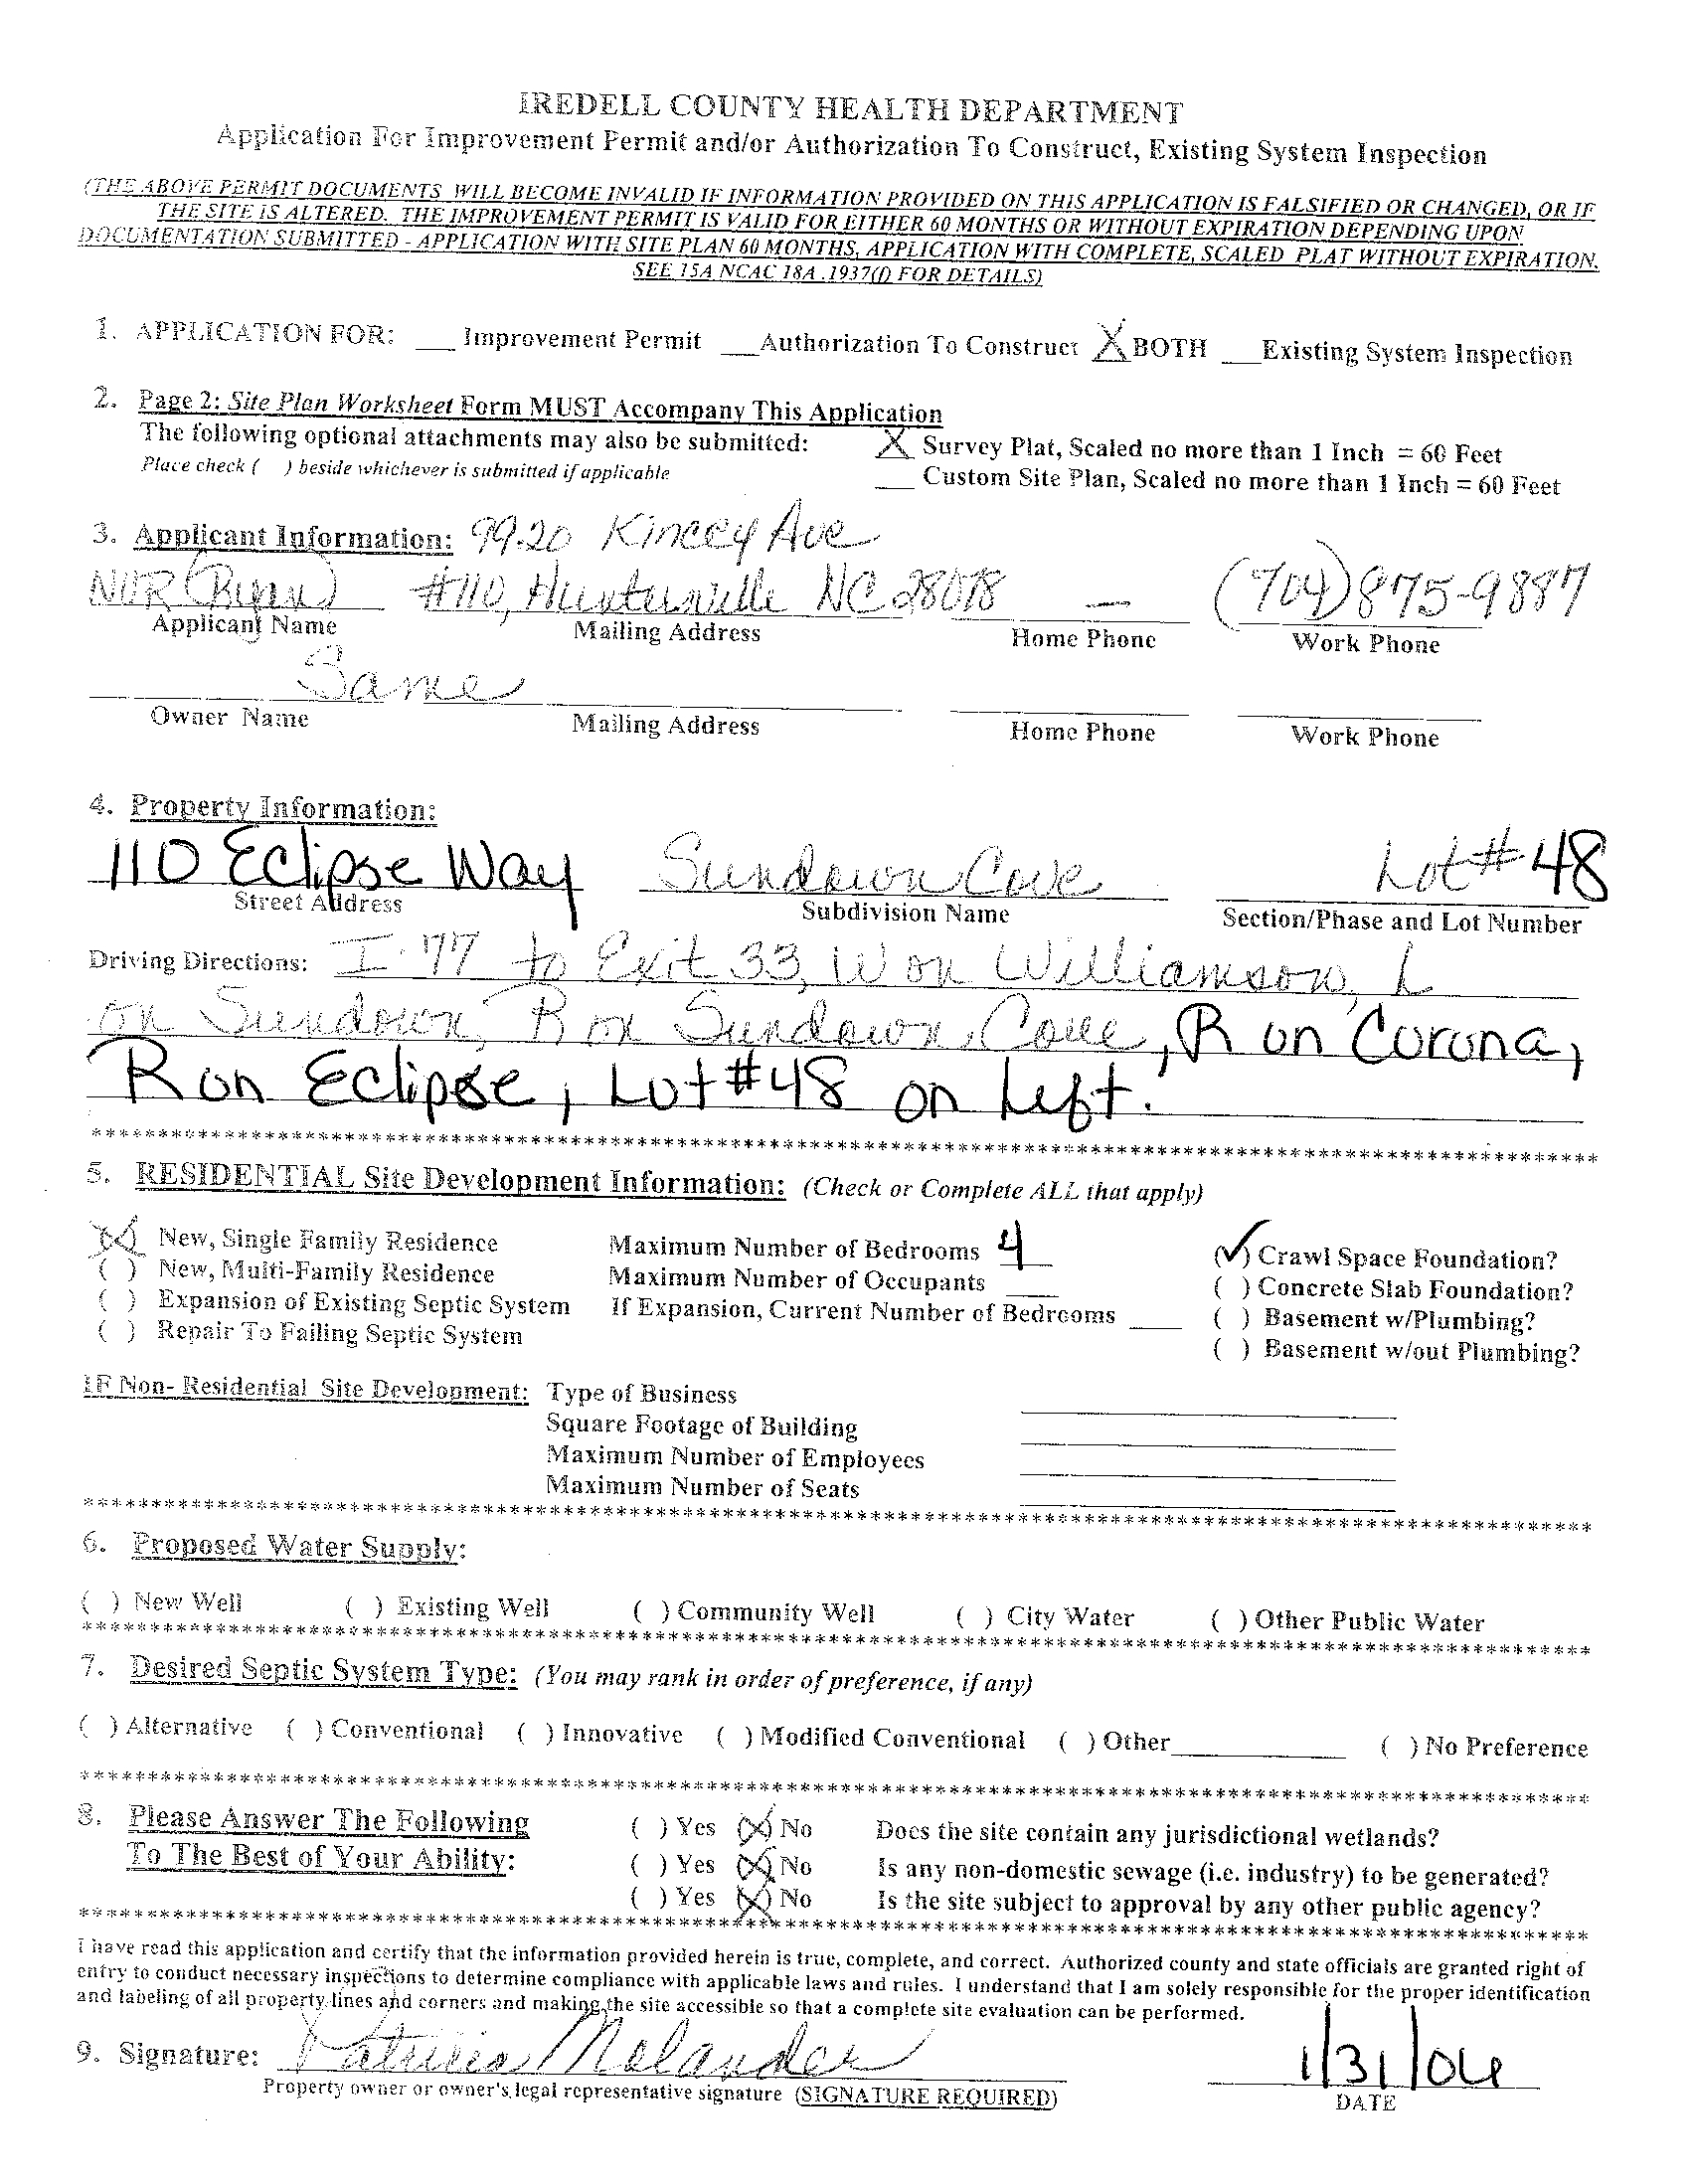 IREDELL COUNTY HEALTH DEPARTMENT
Application For Improvement Permit and/or Authorization To Construct, Existing System Inspection
(THE ABOVE PERMIT DOCUMENTS WILL BECOME INVALID IF INFORMATION PROVIDED ON THIS APPLICATION IS FALSIFIED OR CHANGED, OR IF
THE SITE IS ALTERED. THE IMPROVEMENT PERMIT IS VALID FOR EITHER 60 MONTHS OR WITHOUT EXPIRATION DEPENDING UPON
DOCUMENTATION SUBMITTED - APPLICATION WITH SITE PLAN 60 MONTHS, APPLICATION WITH COMPLETE, SCALED PLAT WITHOUT EXPIRATION.
SEE 15A NCAC 18A .1937(f) FOR DETAILS)
1. APPLICATION FOR: ___ Improvement Permit ___Authorization To Construct X BOTH ___Existing System Inspection
2. Page 2: Site Plan Worksheet Form MUST Accompany This Application
The following optional attachments may also be submitted: X Survey Plat, Scaled no more than 1 Inch = 60 Feet
Place check ( ) beside whichever is submitted if applicable ___ Custom Site Plan, Scaled no more than 1 Inch = 60 Feet
3. Applicant Information: 9920 Kincey Ave
NVR (Ryan) #110, Huntersville NC 28078 — (704) 875-9887
Applicant Name Mailing Address Home Phone Work Phone
Same
Owner Name Mailing Address Home Phone Work Phone
4. Property Information:
110 Eclipse Way Sundown Cove Lot # 48
Street Address Subdivision Name Section/Phase and Lot Number
Driving Directions: I-77 to Exit 33, W on Williamson, L
on Sundown, R on Sundown Cove, R on Corona,
R on Eclipse, Lot #48 on Left.
******************************
5. RESIDENTIAL Site Development Information: (Check or Complete ALL that apply)
(X) New, Single Family Residence Maximum Number of Bedrooms 4 (✓) Crawl Space Foundation?
( ) New, Multi-Family Residence Maximum Number of Occupants ___ ( ) Concrete Slab Foundation?
( ) Expansion of Existing Septic System If Expansion, Current Number of Bedrooms ___ ( ) Basement w/Plumbing?
( ) Repair To Failing Septic System ( ) Basement w/out Plumbing?
IF Non- Residential Site Development: Type of Business
Square Footage of Building
Maximum Number of Employees
Maximum Number of Seats
******************************
6. Proposed Water Supply:
( ) New Well ( ) Existing Well ( ) Community Well ( ) City Water ( ) Other Public Water
******************************
7. Desired Septic System Type: (You may rank in order of preference, if any)
( ) Alternative ( ) Conventional ( ) Innovative ( ) Modified Conventional ( ) Other___ ( ) No Preference
******************************
8. Please Answer The Following ( ) Yes (X) No Does the site contain any jurisdictional wetlands?
To The Best of Your Ability: ( ) Yes (X) No Is any non-domestic sewage (i.e. industry) to be generated?
( ) Yes (X) No Is the site subject to approval by any other public agency?
******************************
I have read this application and certify that the information provided herein is true, complete, and correct. Authorized county and state officials are granted right of
entry to conduct necessary inspections to determine compliance with applicable laws and rules. I understand that I am solely responsible for the proper identification
and labeling of all property lines and corners and making the site accessible so that a complete site evaluation can be performed.
9. Signature: Patricia Melander 1/31/06
Property owner or owner's legal representative signature (SIGNATURE REQUIRED) DATE